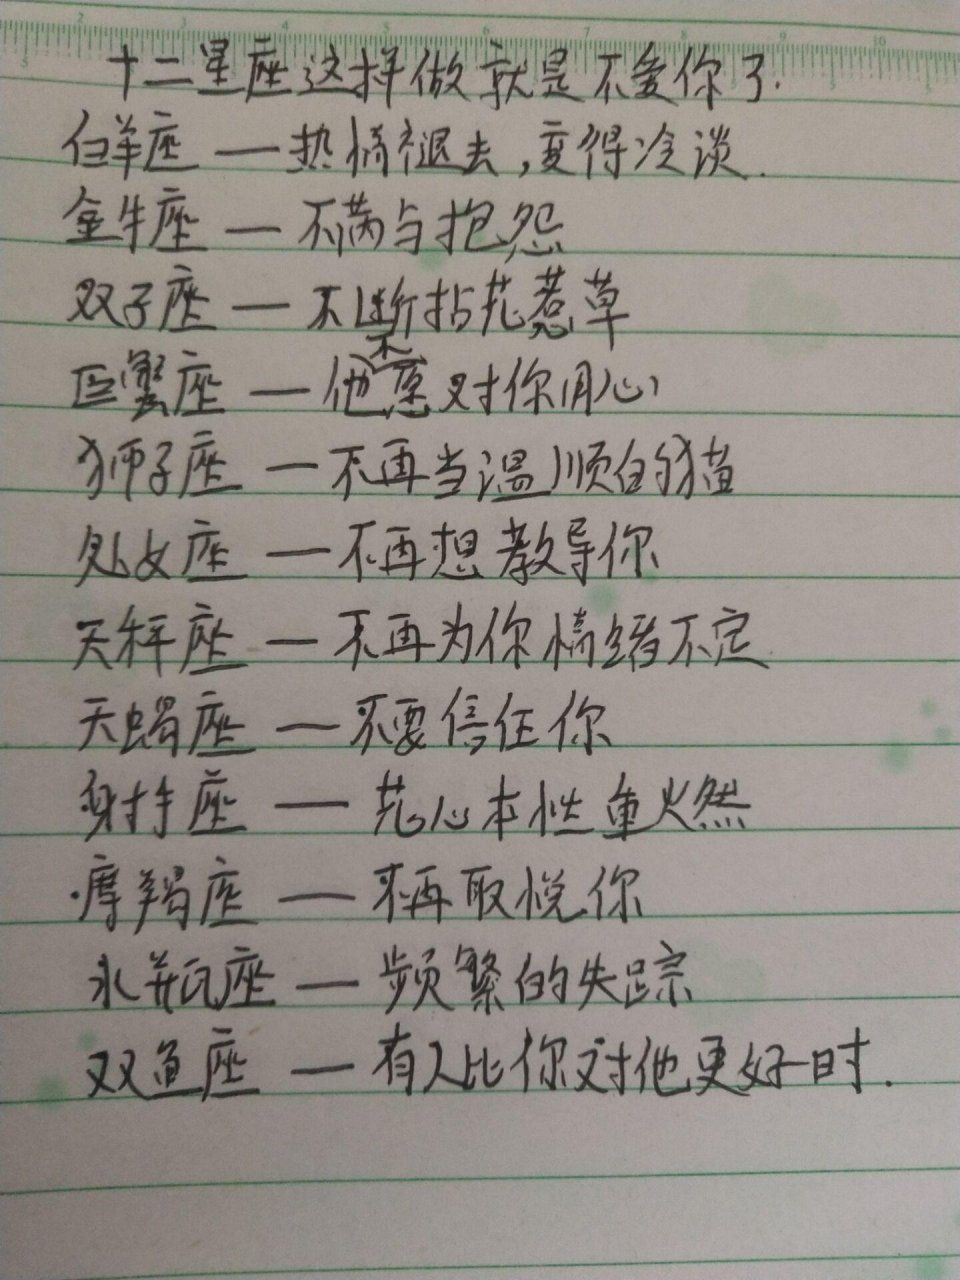 十二星座这样做就是不爱你了.
白羊座—热情褪去,变得冷谈.
金牛座—不满与抱怨
双子座—不断拈花惹草
巨蟹座—他不愿对你用心
狮子座—不再当温顺的猫
处女座—不再想教导你
天秤座—不再为你情绪不定
天蝎座—不要信任你
射手座—花心本性重燃
摩羯座—不再取悦你
水瓶座—频繁的失踪
双鱼座—有人比你对他更好时.